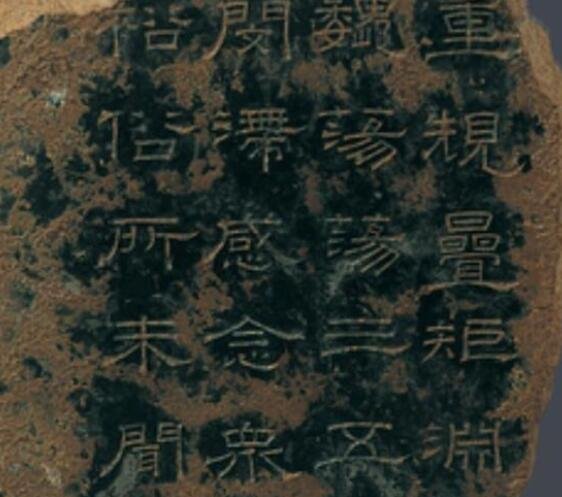 重規疊矩淵
巍蕩蕩三五
閔滯感念眾
俗俗所未聞